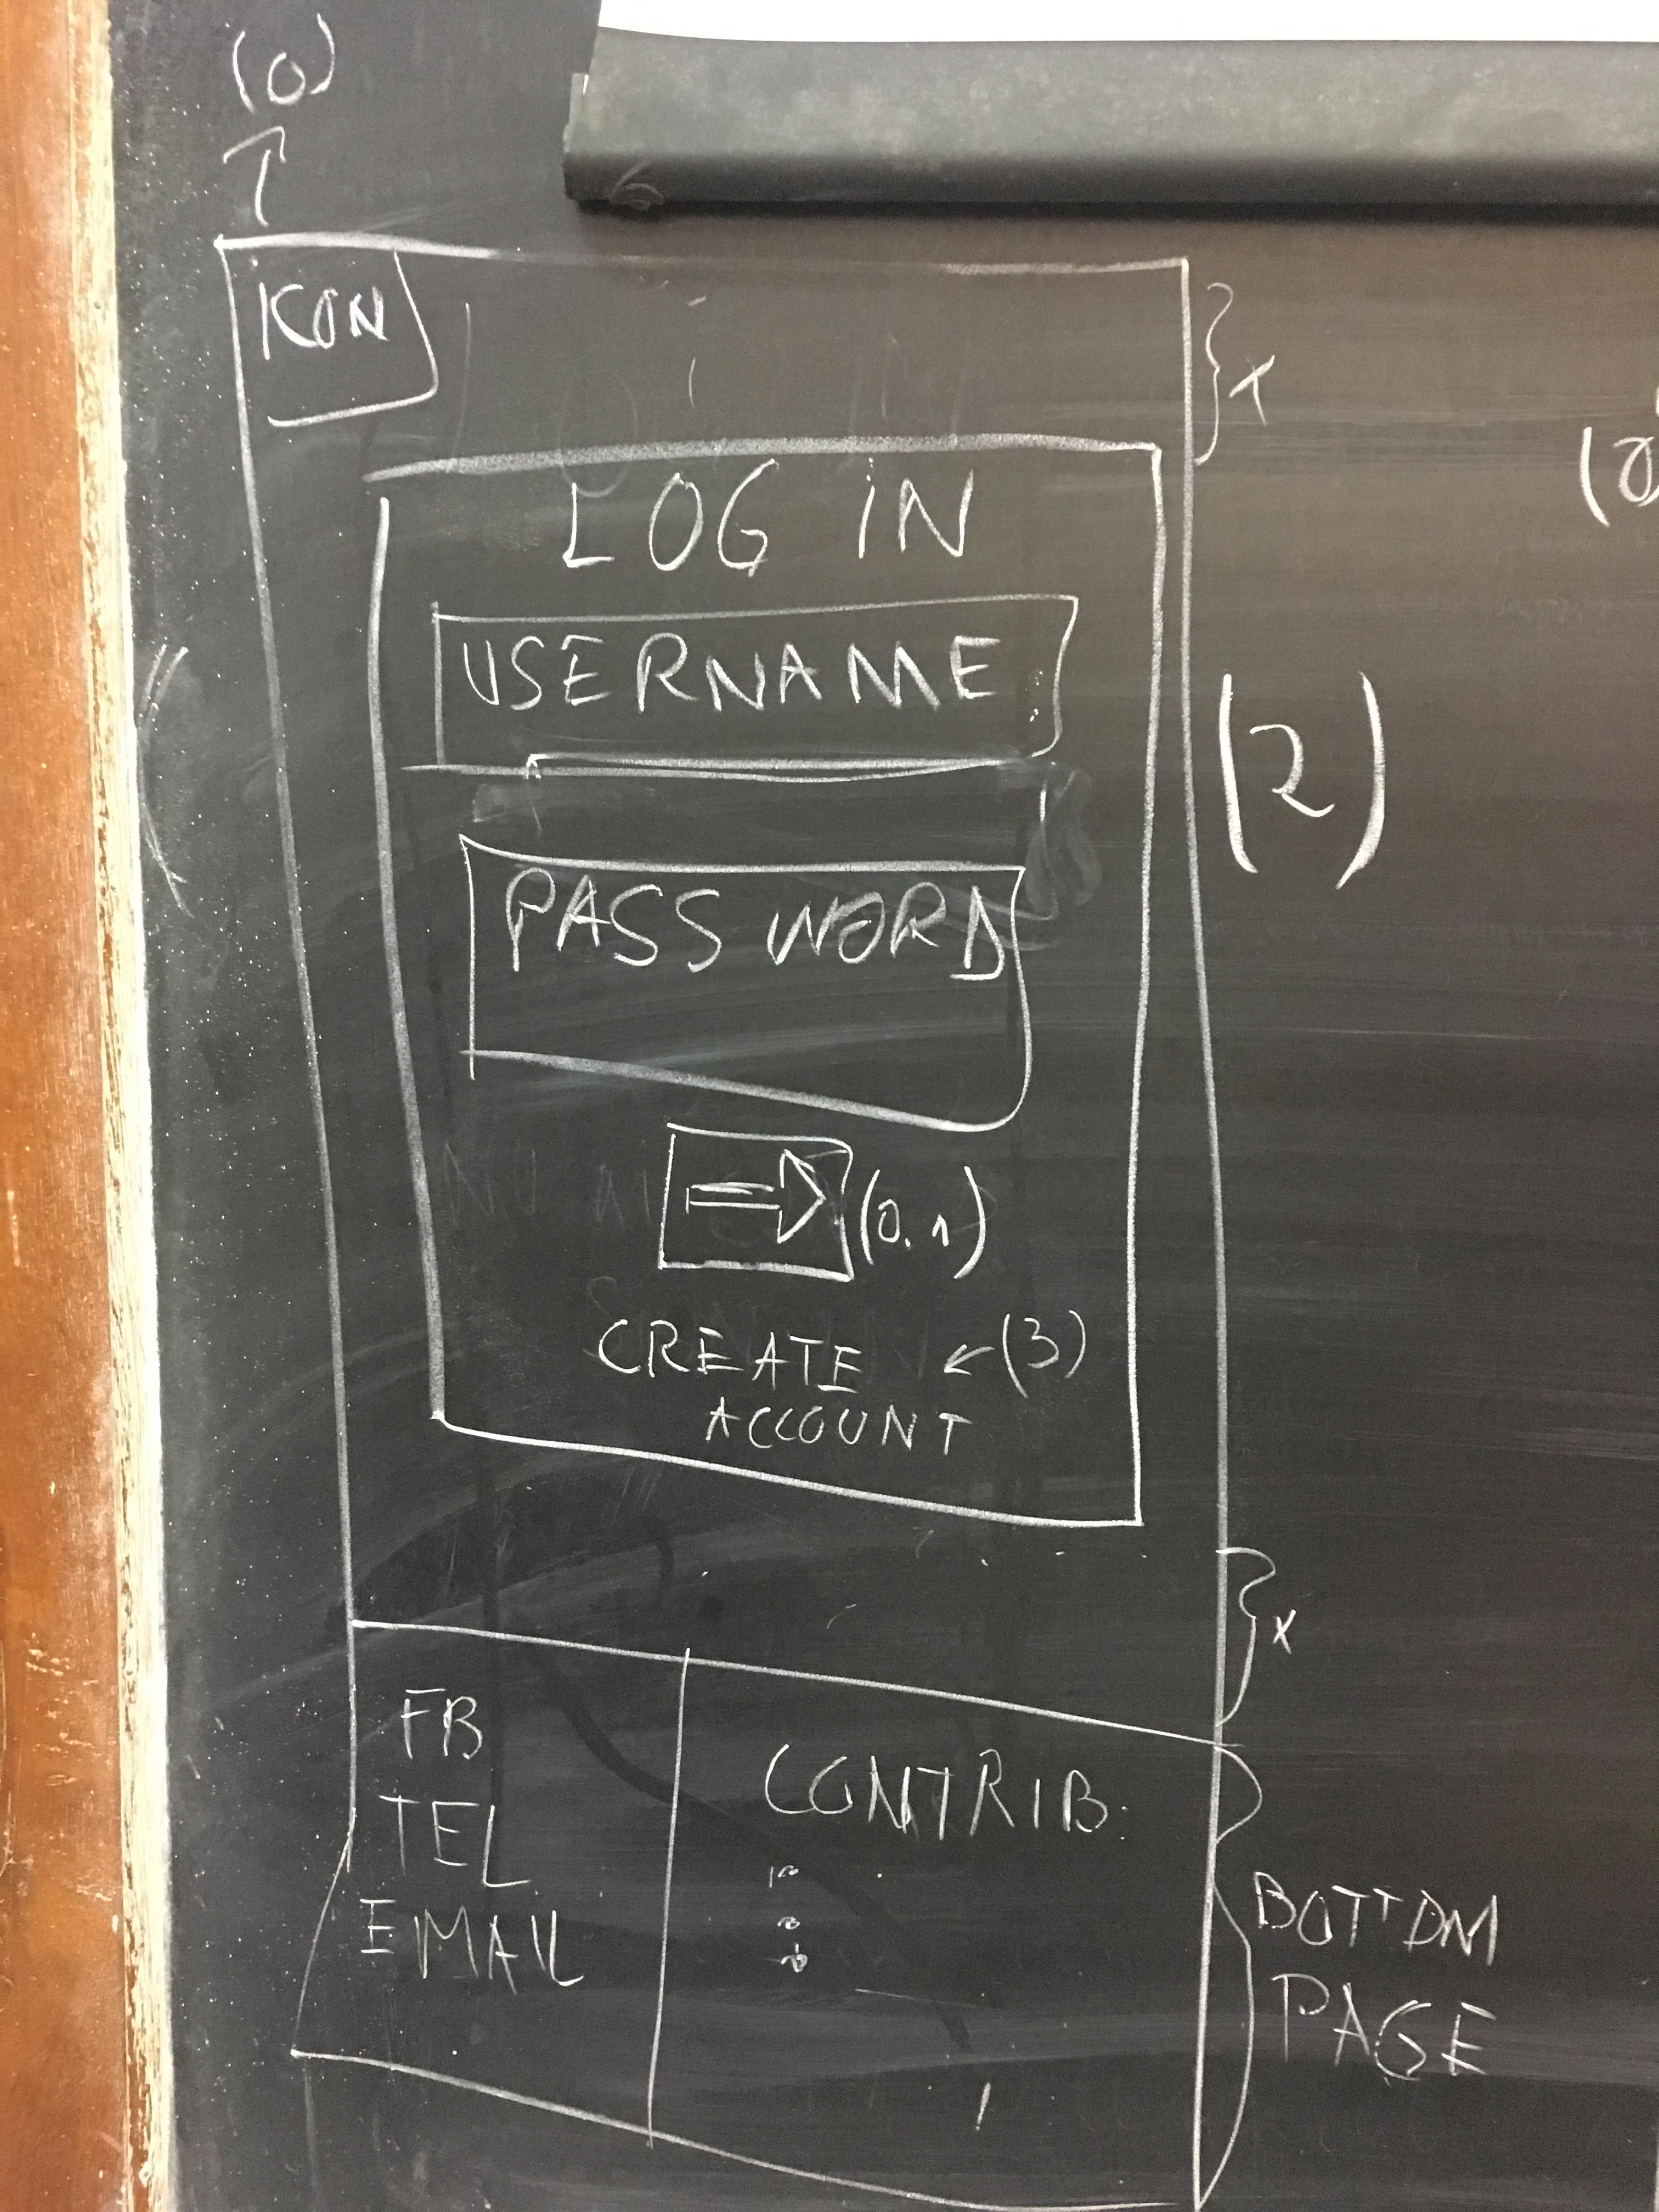 (0)
iKON
x
LOG iN
USERNAME
(2)
PASSWORD
(0.1)
CREATE ← (3)
ACCOUNT
x
FB
TEL
EMAIL
CONTRIB.
BOTTOM
PAGE